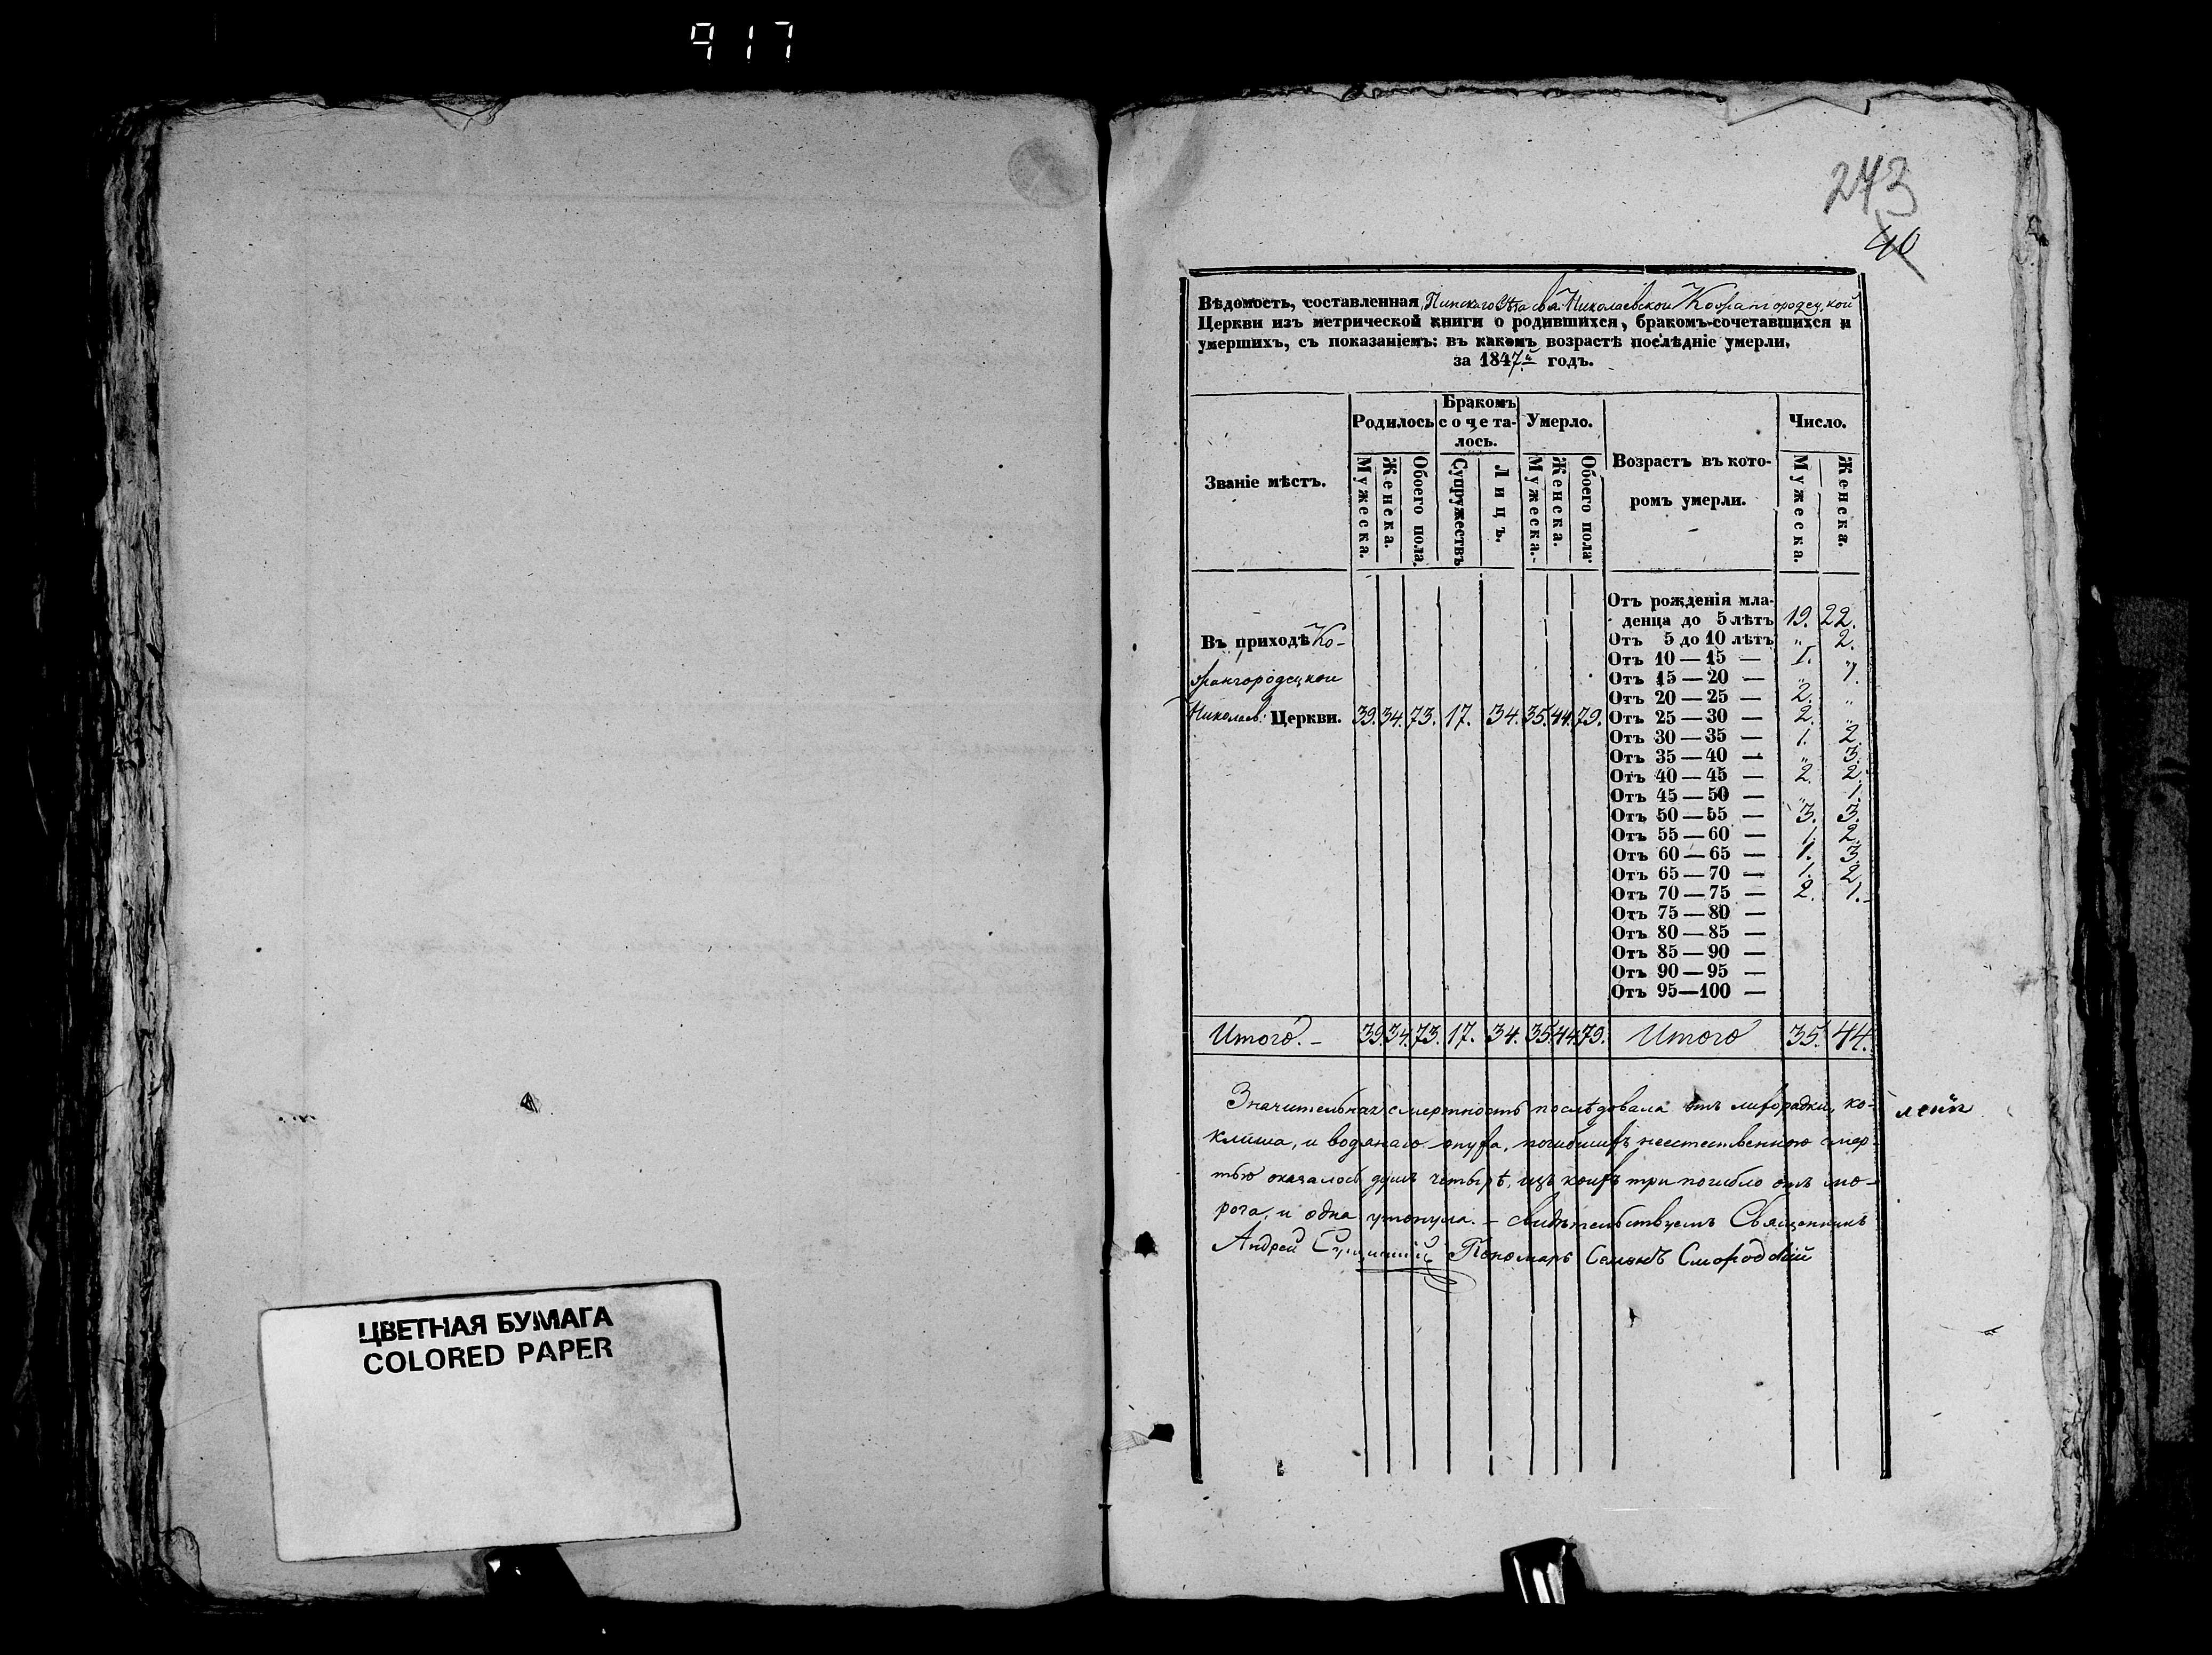 917
273
40
Вѣдомость, составленная Пинскаго Уѣзда св. Николаевской Кожангородецкой
Церкви изъ метрической книги о родившихся, бракомъ-сочетавшихся и
умершихъ, съ показаніемъ: въ какомъ возрастѣ послѣдніе умерли,
за 1847й годъ.
Званіе мѣстъ.
Родилось
Бракомъ
сочета-
лось.
Умерло.
Возрастъ въ кото-
ромъ умерли.
Число.
Мужеска.
Женска.
Обоего пола.
Супружествъ
Лицъ.
Мужеска.
Женска.
Обоего пола.
Мужеска.
Женска.
Въ приходѣ Ко-
жангородецкой
Николаев. Церкви. 39. 34. 73. 17. 34. 35. 44. 79.
Отъ рожденія мла-
денца до 5 лѣтъ 19. 22.
Отъ 5 до 10 лѣтъ „ 2.
Отъ 10 — 15 — 1. „
Отъ 15 — 20 — „ 1.
Отъ 20 — 25 — 2. „
Отъ 25 — 30 — 2. „
Отъ 30 — 35 — 1. 2.
Отъ 35 — 40 — „ 3.
Отъ 40 — 45 — 2. 2.
Отъ 45 — 50 — „ 1.
Отъ 50 — 55 — 3. 3.
Отъ 55 — 60 — 1. 2.
Отъ 60 — 65 — 1. 3.
Отъ 65 — 70 — 1. 2.
Отъ 70 — 75 — 2. 1.
Отъ 75 — 80 —
Отъ 80 — 85 —
Отъ 85 — 90 —
Отъ 90 — 95 —
Отъ 95—100 —
Итого. – 39. 34. 73. 17. 34. 35. 44. 79. Итого 35. 44.
Значительная смертность послѣдовала отъ лихорадки, ко-
клиша, и водянаго опуха, погибшихъ неестественною смер-
тью оказалось душъ четырѣ, изъ коихъ три погибло отъ мо-
роза, и одна утонула. – Свидѣтельствуемъ Священникъ
Андрей Пономарь Семенъ Смородскій
ЦВЕТНАЯ БУМАГА
COLORED PAPER